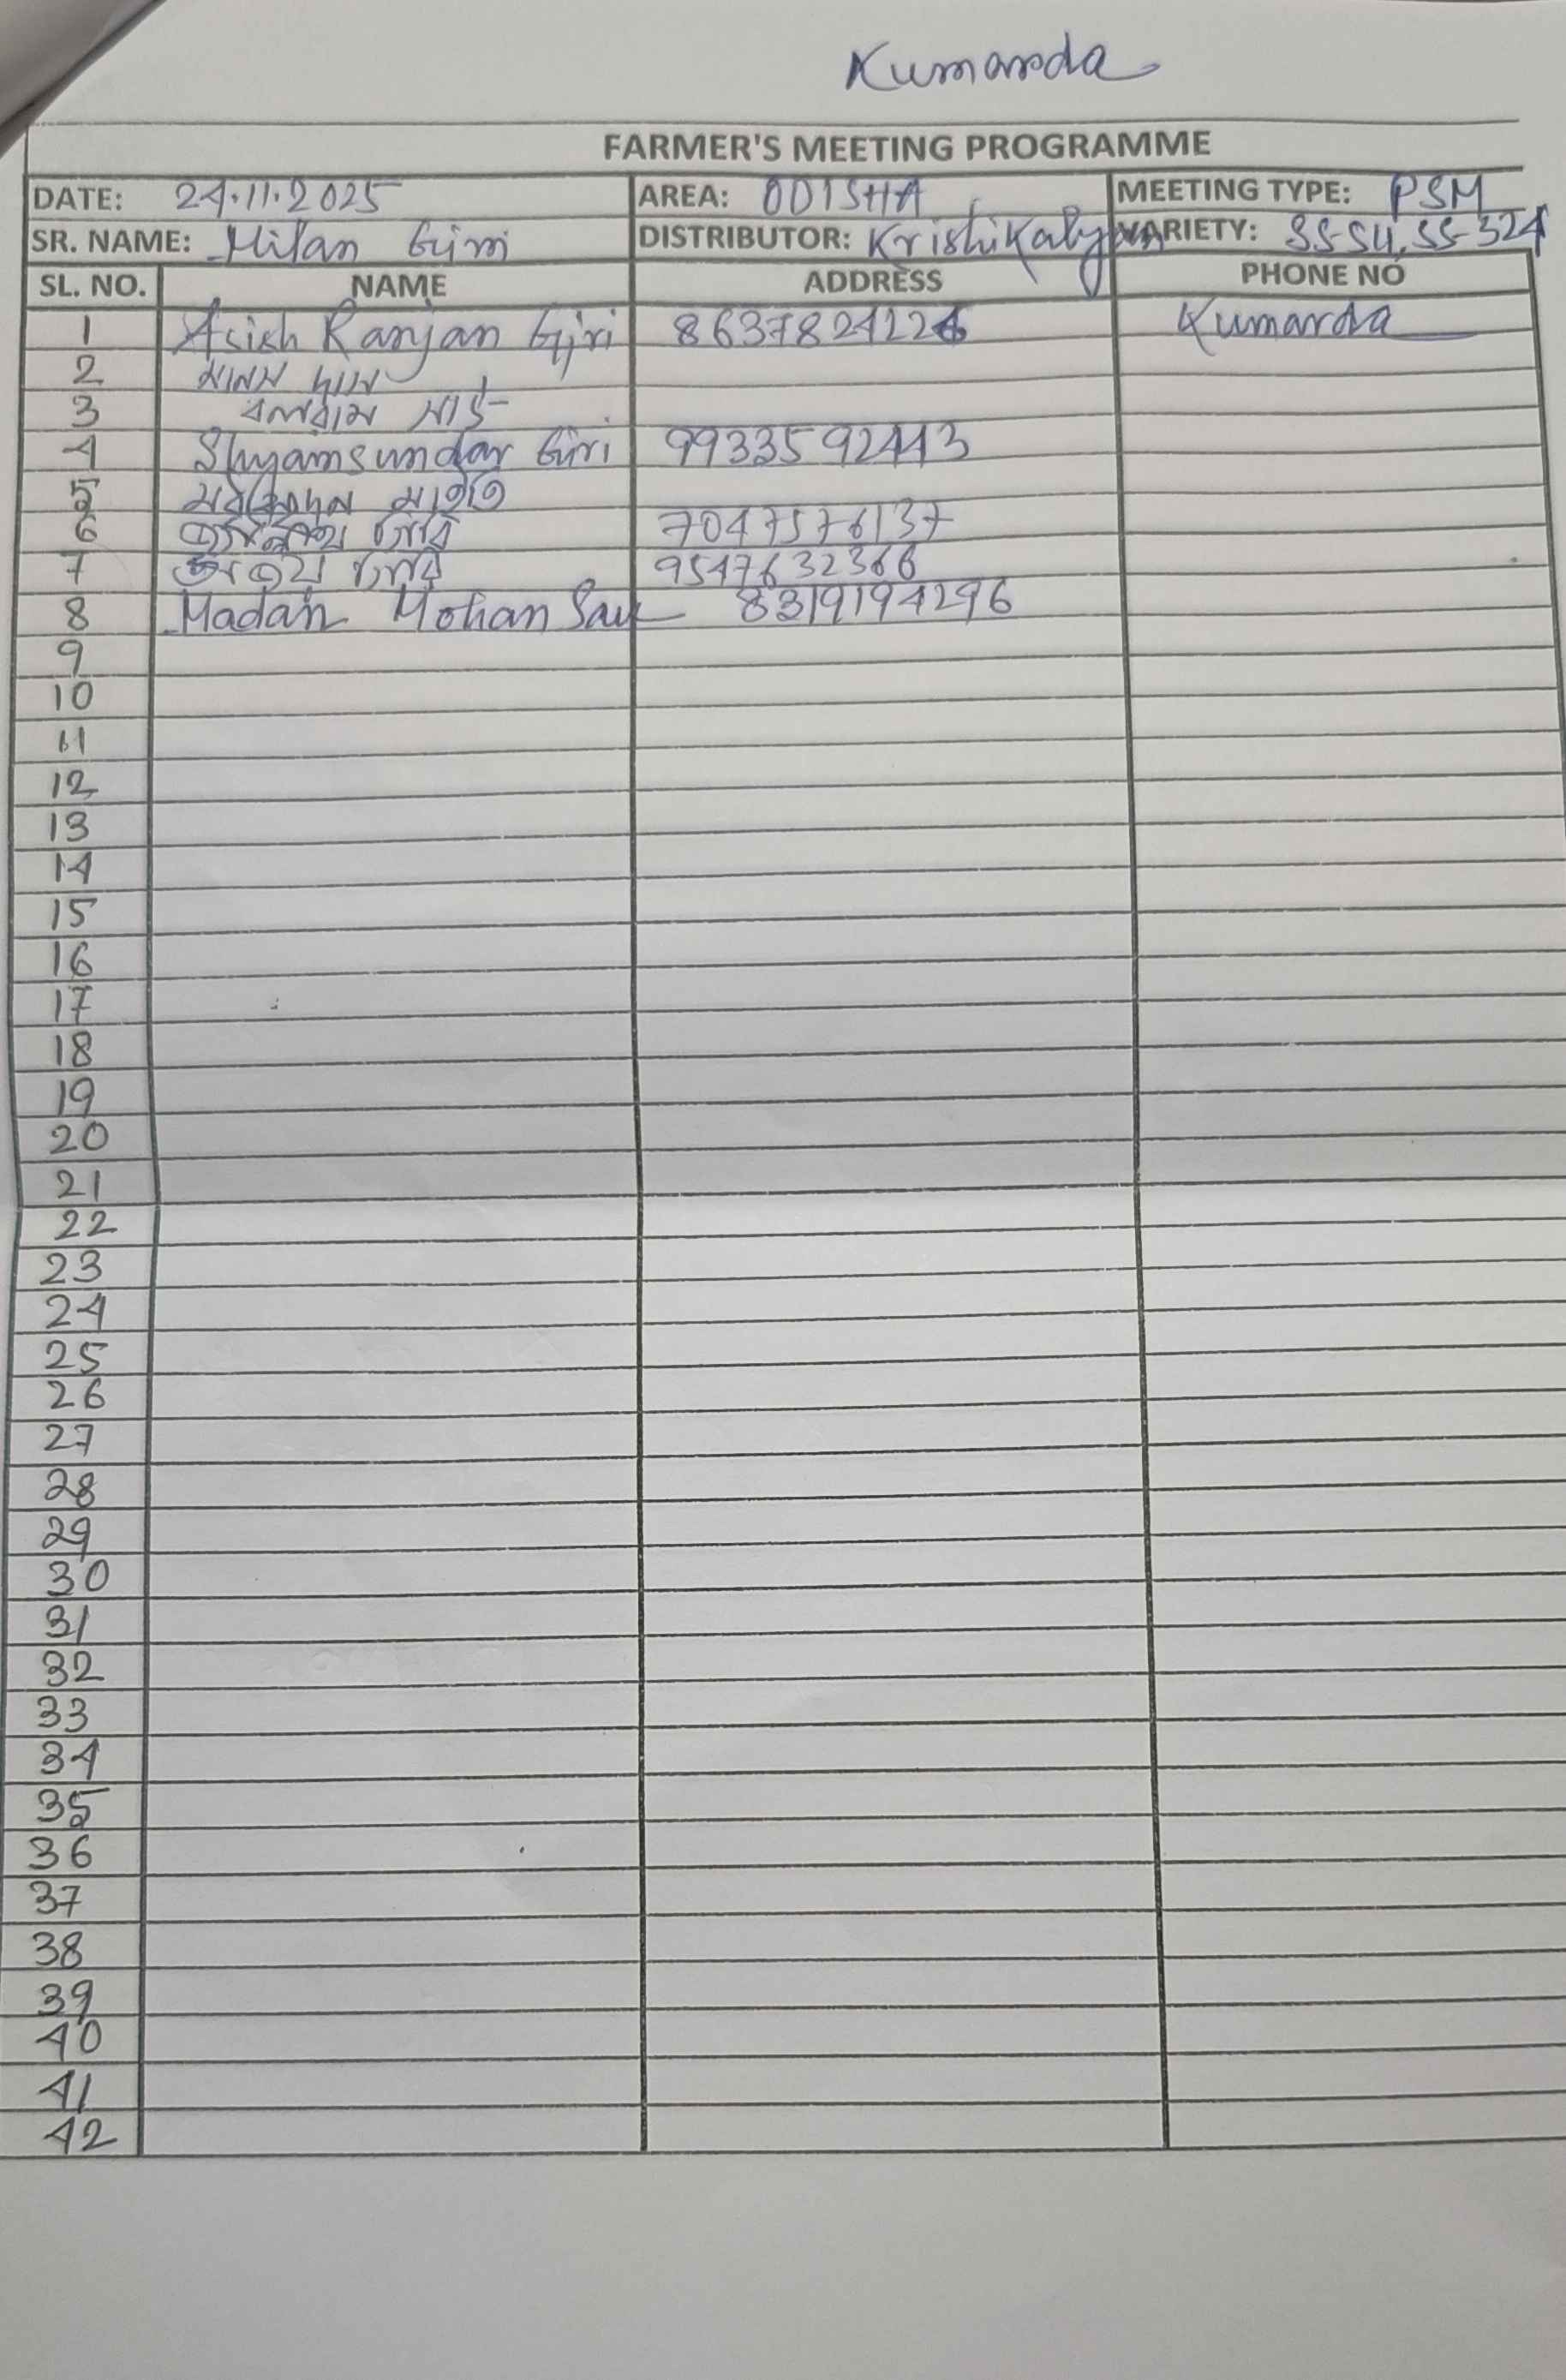 Kumarda
FARMER'S MEETING PROGRAMME
DATE: 24.11.2025 AREA: ODISHA MEETING TYPE: PSM
SR. NAME: Milan Giri DISTRIBUTOR: Krishi Kalyan VARIETY: SS-54, SS-324
SL. NO. NAME ADDRESS PHONE NO
1 Asish Ranjan Giri 8637824226 Kumarda
2 মানস দাস
3 বলরাম সাউ
4 Shyamsundar Giri 9933592443
5 মাইতি
6 গিরি 7047576137
7 গিরি 9547632366
8 Madan Mohan Sau 8319194296
9
10
11
12
13
14
15
16
17
18
19
20
21
22
23
24
25
26
27
28
29
30
31
32
33
34
35
36
37
38
39
40
41
42